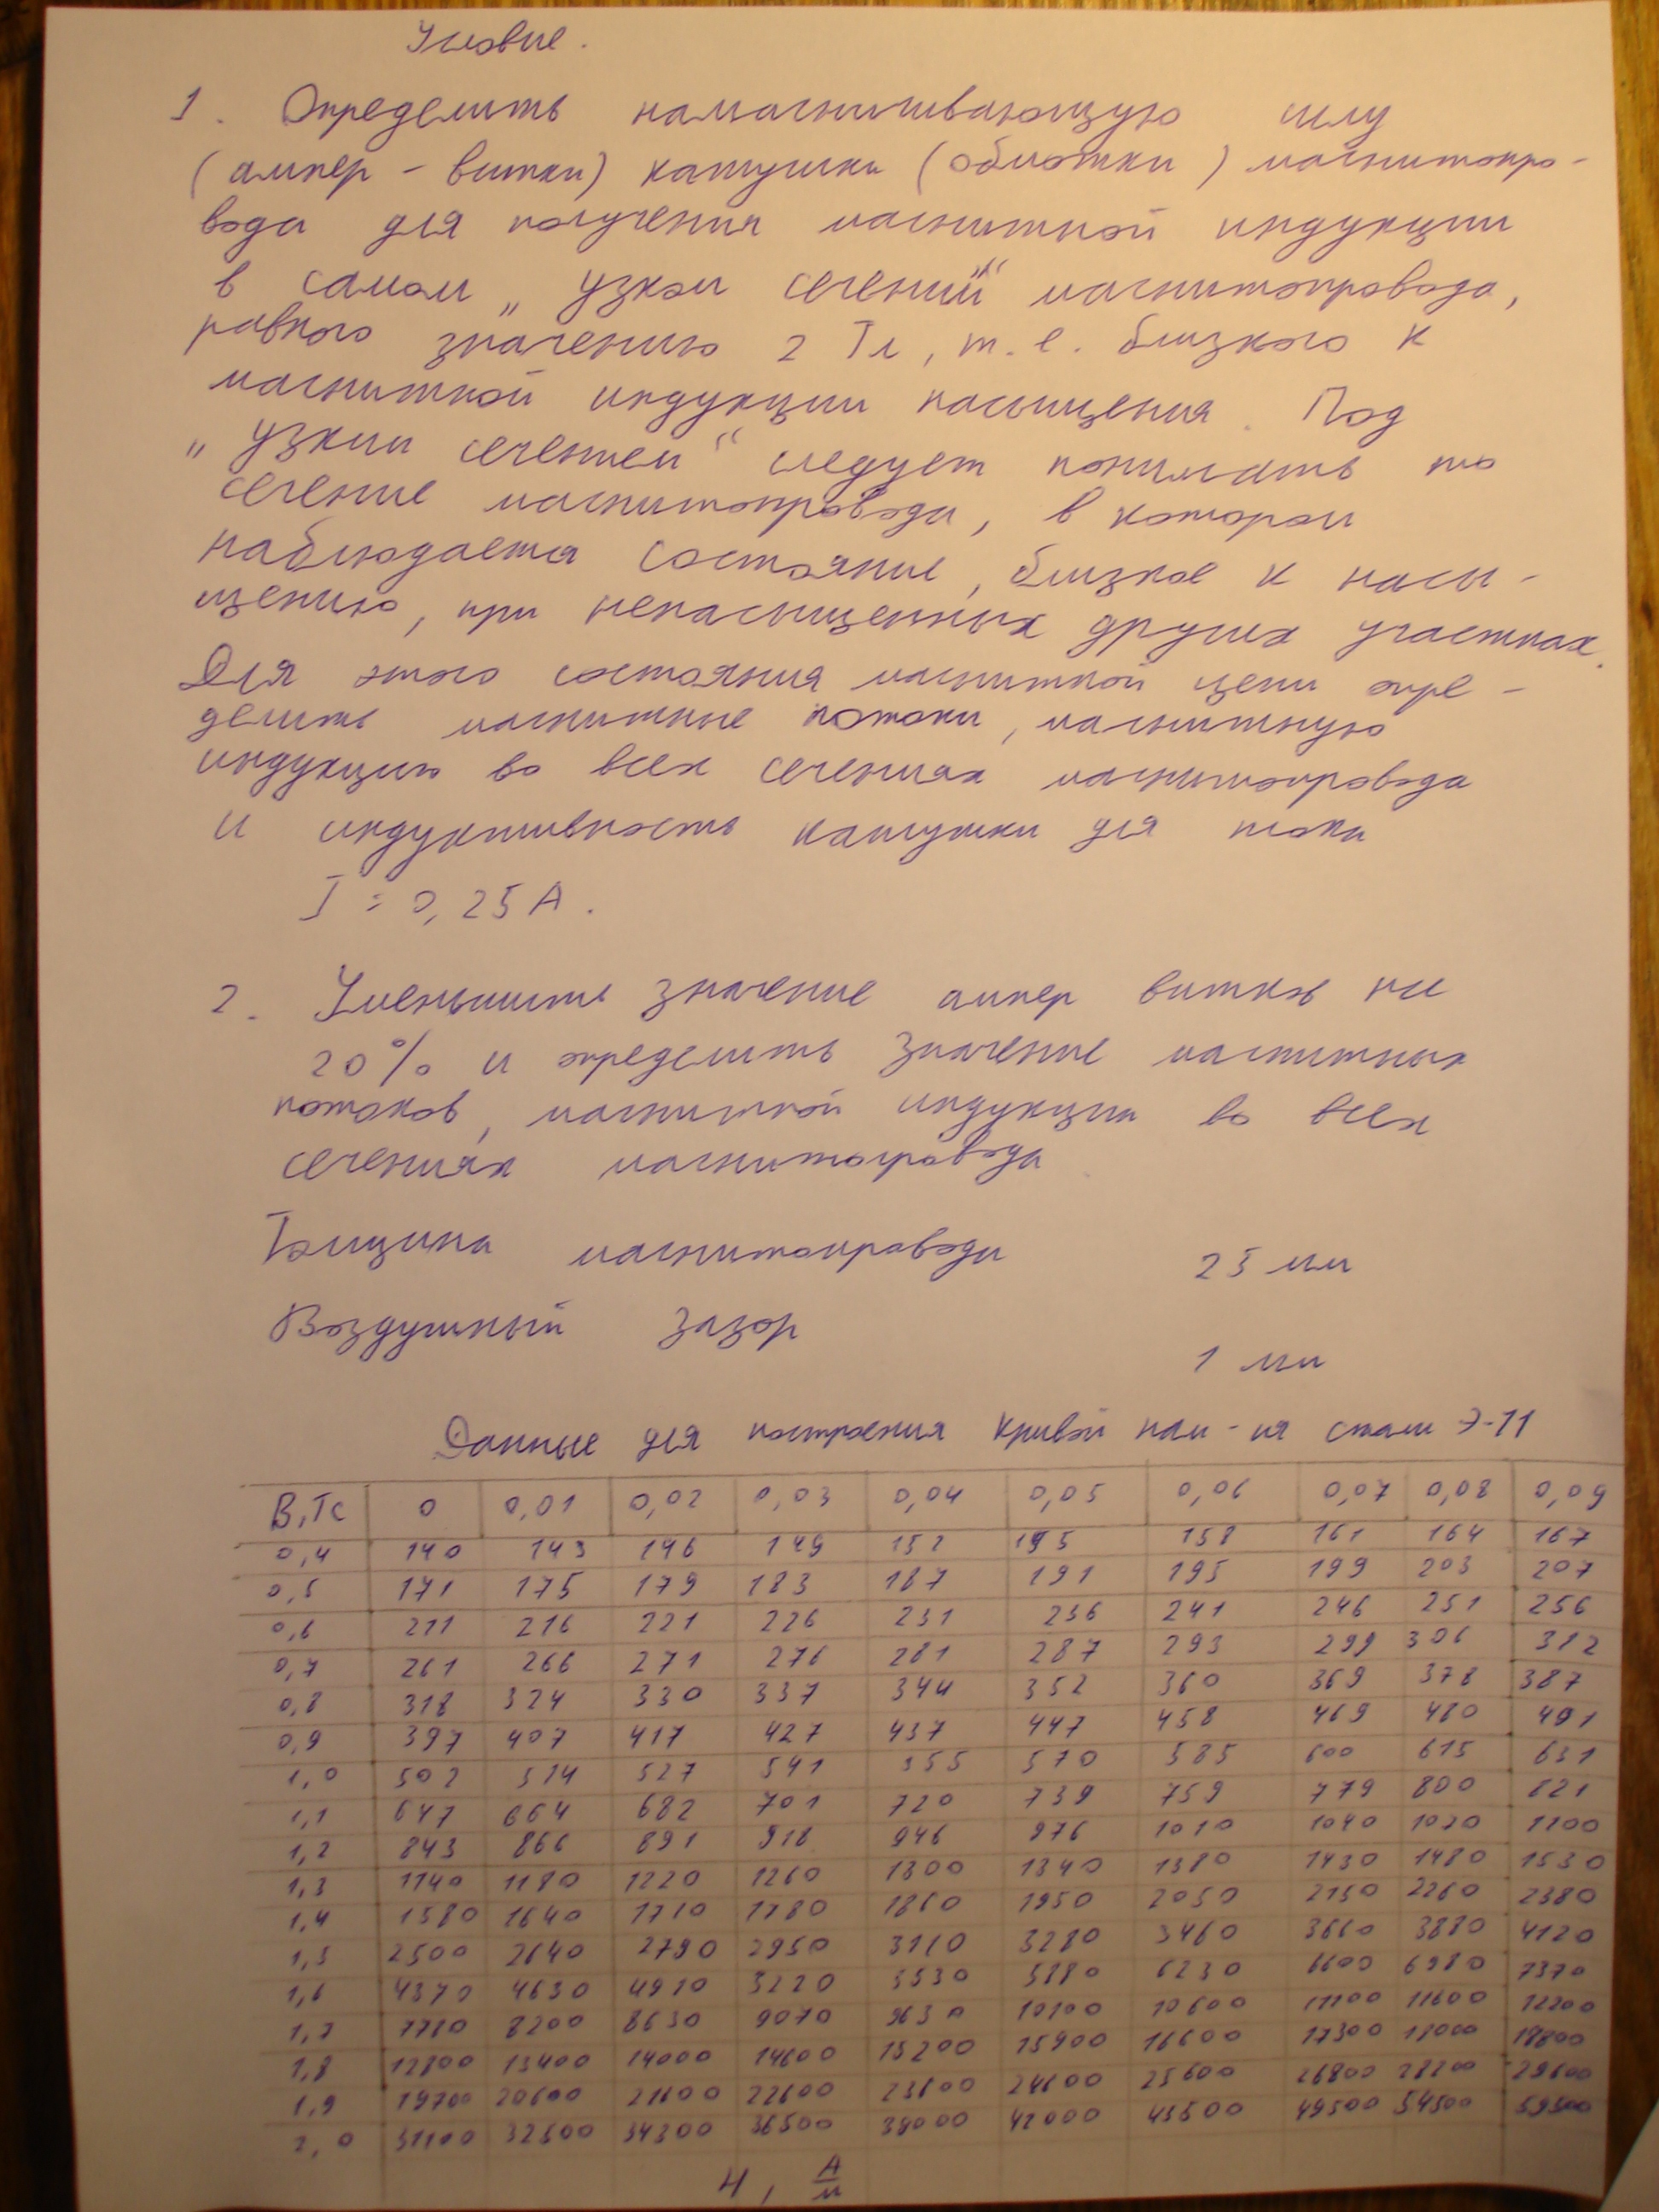 Условие.
1. Определить намагничивающую силу
(ампер - витки) катушки (обмотки) магнитопро-
вода для получения магнитной индукции
в самом „узком сечении“ магнитопровода,
равного значению 2 Тл, т.е. близкого к
магнитной индукции насыщения. Под
„узким сечением“ следует понимать то
сечение магнитопровода, в котором
наблюдается состояние, близкое к насы-
щению, при ненасыщенных других участках.
Для этого состояния магнитной цепи опре-
делить магнитные потоки, магнитную
индукцию во всех сечениях магнитопровода
и индуктивность катушки для тока
I = 0,25 А.
2. Уменьшить значение ампер витков на
20% и определить значение магнитных
потоков, магнитной индукции во всех
сечениях магнитопровода
Толщина магнитопровода 25 мм
Воздушный зазор 1 мм
Данные для построения кривой нам-ия стали Э-11
В,Тс 0 0,01 0,02 0,03 0,04 0,05 0,06 0,07 0,08 0,09
0,4 140 143 146 149 152 195 158 161 164 167
0,5 171 175 179 183 187 191 195 199 203 207
0,6 211 216 221 226 231 236 241 246 251 256
0,7 261 266 271 276 281 287 293 299 306 312
0,8 318 324 330 337 344 352 360 369 378 387
0,9 397 407 417 427 437 447 458 469 480 491
1,0 502 514 527 541 555 570 585 600 615 631
1,1 647 664 682 701 720 739 759 779 800 821
1,2 843 866 891 918 946 976 1010 1040 1070 1100
1,3 1140 1180 1220 1260 1300 1340 1380 1430 1480 1530
1,4 1580 1640 1710 1780 1860 1950 2050 2150 2260 2380
1,5 2500 2640 2790 2950 3110 3280 3460 3660 3880 4120
1,6 4370 4630 4910 5220 5530 5880 6230 6600 6980 7370
1,7 7780 8200 8630 9070 9630 10100 10600 11100 11600 12200
1,8 12800 13400 14000 14600 15200 15900 16600 17300 18000 18800
1,9 19700 20600 21600 22600 23600 24600 25600 26800 28200 29600
2,0 31100 32600 34300 36500 39000 42000 45500 49500 54500 59500
Н, А/м